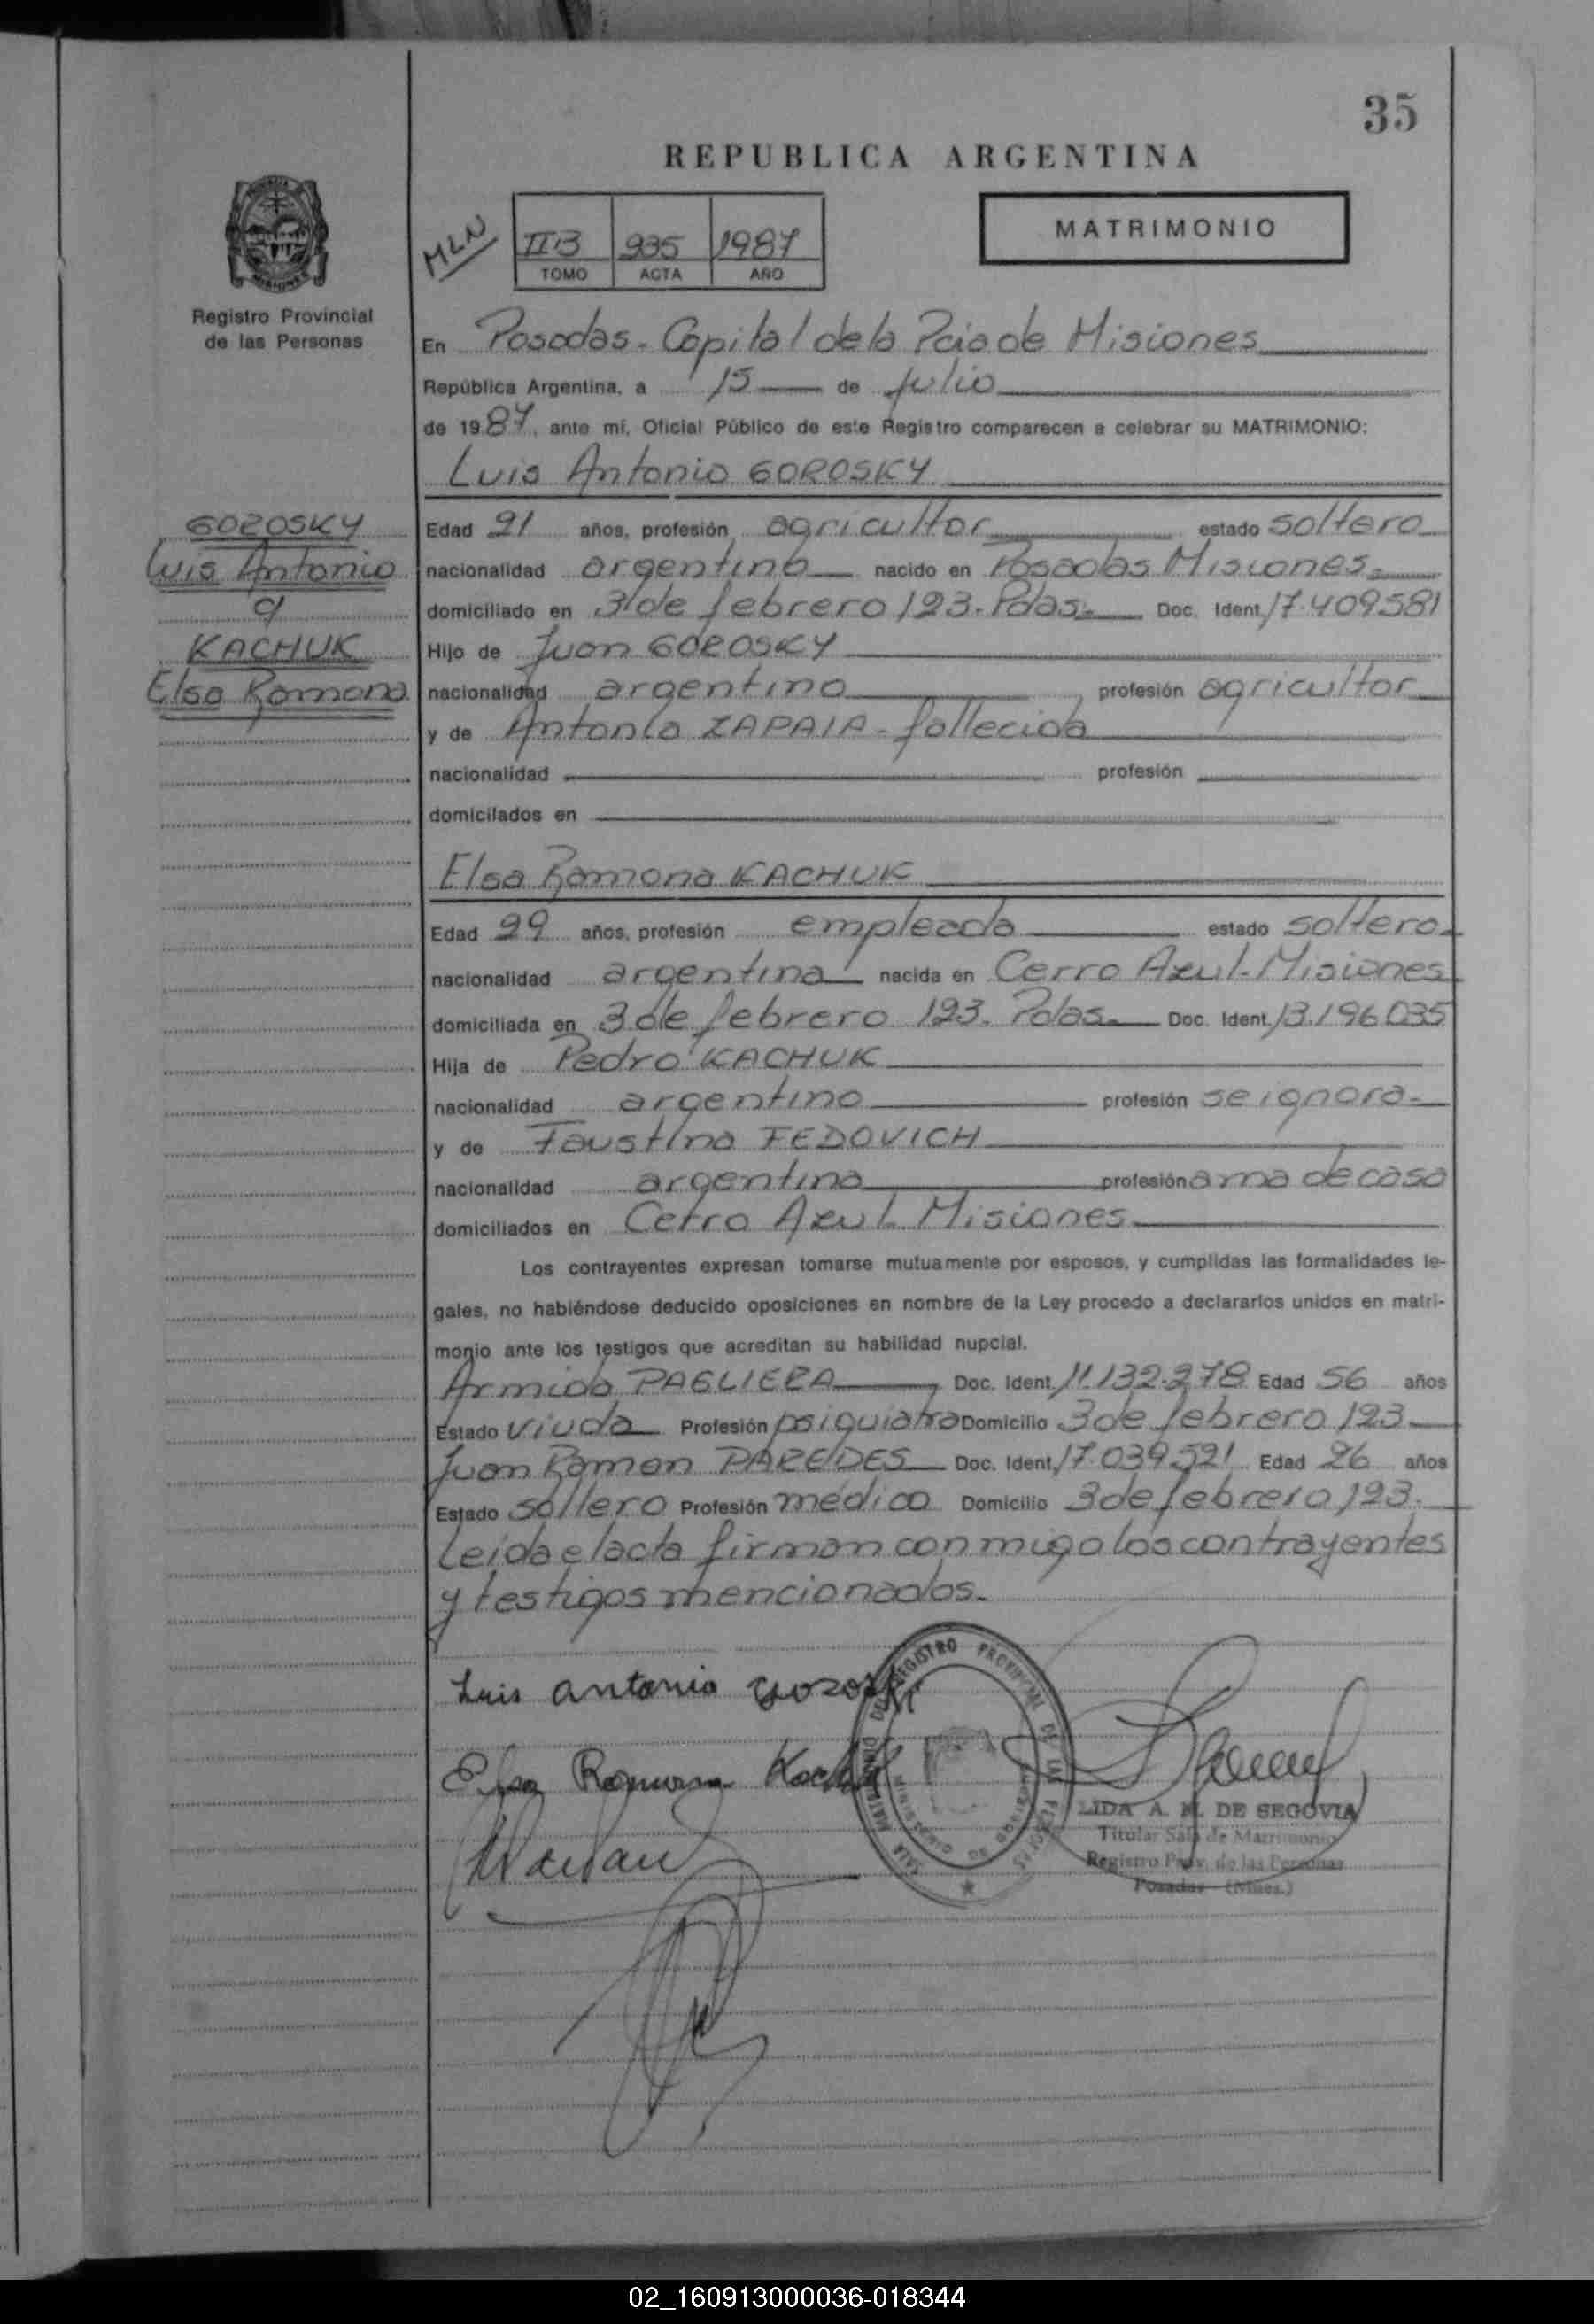 35
REPUBLICA ARGENTINA
MLN
II B 235 1987
TOMO ACTA AÑO
MATRIMONIO
Registro Provincial
de las Personas
En Posadas - Capital de la Pcia de Misiones
República Argentina, a 15 de julio
de 1987, ante mí, Oficial Público de este Registro comparecen a celebrar su MATRIMONIO:
Luis Antonio GOROSKY
GOROSKY
Luis Antonio
KACHUK
Elsa Ramona
Edad 21 años, profesión agricultor estado soltero
nacionalidad argentino nacido en Posadas Misiones.
domiciliado en 3 de febrero 123. Pdas. Doc. Ident. 17.409581
Hijo de Juan GOROSKY
nacionalidad argentino profesión agricultor
y de Antonia ZAPAIA - fallecida
nacionalidad profesión
domicilados en
Elsa Ramona KACHUK
Edad 29 años, profesión empleada estado soltera
nacionalidad argentina nacida en Cerro Azul - Misiones
domiciliada en 3 de febrero 123. Pdas. Doc. Ident. 13.196035
Hija de Pedro KACHUK
nacionalidad argentino profesión se ignora.
y de Faustina FEDOVICH
nacionalidad argentina profesión ama de casa
domiciliados en Cerro Azul Misiones
Los contrayentes expresan tomarse mutuamente por esposos, y cumplidas las formalidades le-
gales, no habiéndose deducido oposiciones en nombre de la Ley procedo a declararlos unidos en matri-
monio ante los testigos que acreditan su habilidad nupcial.
Armida PAGLIERA Doc. Ident. 11.132.278 Edad 56 años
Estado viuda Profesión psiquiatra Domicilio 3 de febrero 123
Juan Ramon PAREDES Doc. Ident. 17.039521 Edad 26 años
Estado soltero Profesión médico Domicilio 3 de febrero 123.
Leída el acta firman conmigo los contrayentes
y testigos mencionados.
Luis antonio
Elsa Ramona
REGISTRO PROVINCIAL DE LAS PERSONAS
LIDA A. M. DE SEGOVIA
Titular Sala de Matrimonio
Registro Prov. de las Personas
Posadas - (Mnes.)
02_160913000036-018344